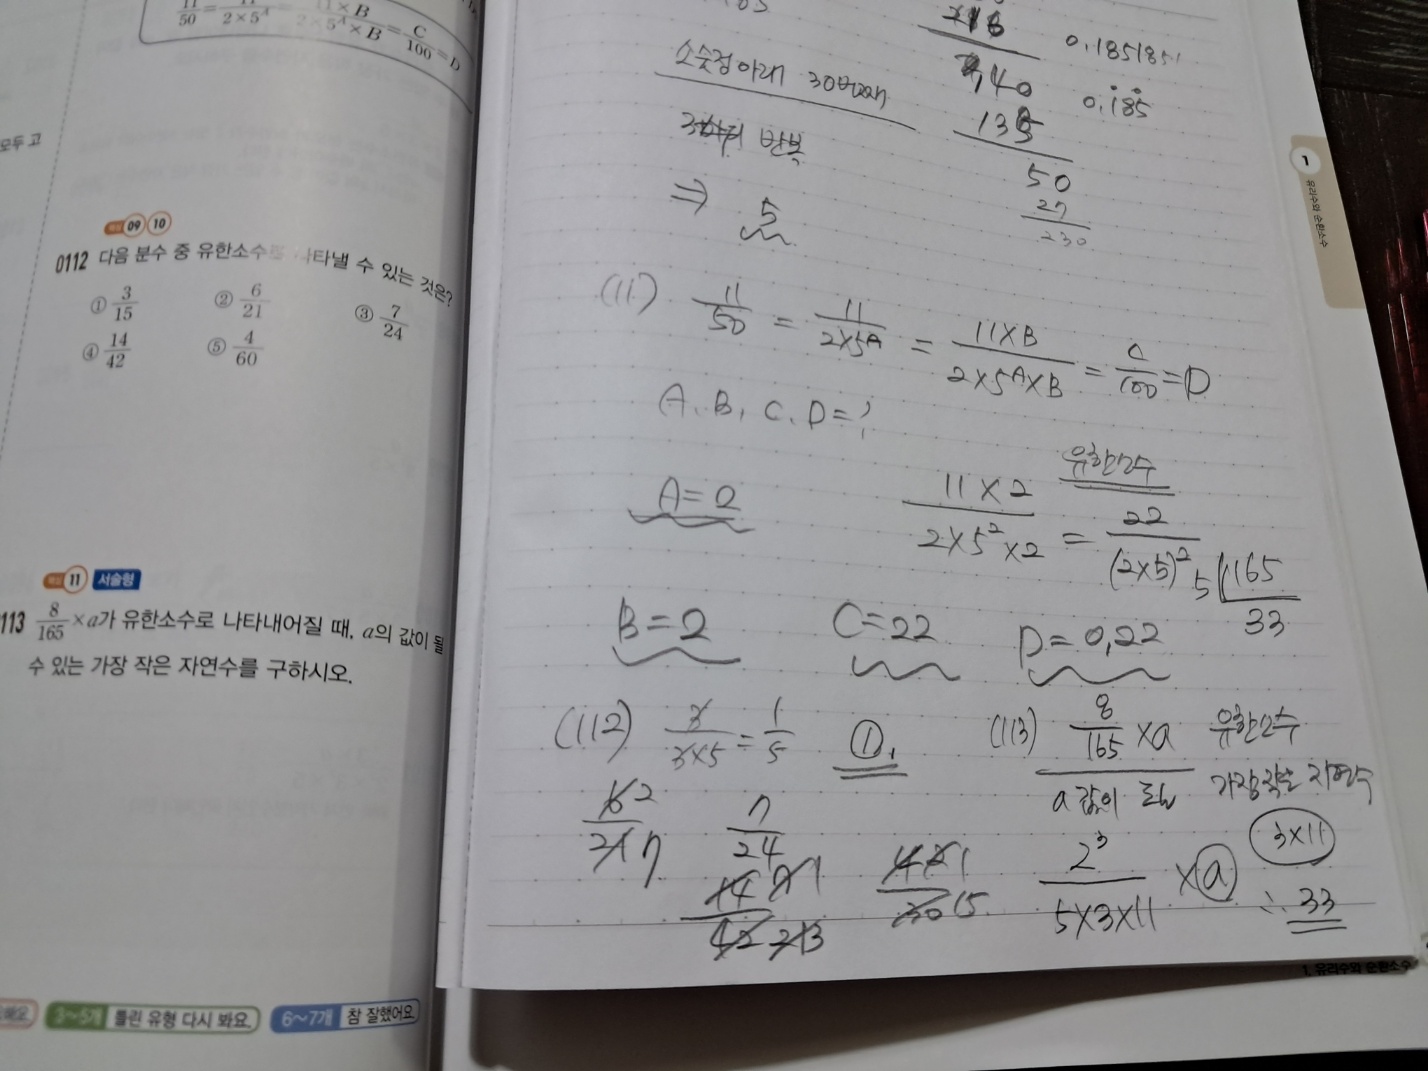 11/50 = 11/2×5^A = 11×B/2×5^A×B = C/100 = D
모두 고
09 10
0112 다음 분수 중 유한소수로 나타낼 수 있는 것은?
① 3/15 ② 6/21 ③ 7/24
④ 14/42 ⑤ 4/60
11 서술형
113 8/165 ×a가 유한소수로 나타내어질 때, a의 값이 될
수 있는 가장 작은 자연수를 구하시오.
3~5개 틀린 유형 다시 봐요. 6~7개 참 잘했어요
216
0.185185
소숫점아래 30번째
140
0.185
135
반복
50
27
230
⇒ 5
(11) 11/50 = 11/2×5^A = 11×B/2×5^A×B = C/100 = D
A, B, C, D = ?
유한소수
A=2
11×2/2×5²×2 = 22/(2×5)²
5 165
33
B=2 C=22 D=0,22
(112) 3/3×5 = 1/5 ①,
6 2/21 7
7/24
14 2 1/42 21 3
4 2 1/30 15
(113) 8/165 ×a 유한소수
a값이 가장작은 자연수
2³/5×3×11 ×a
3×11
∴ 33
1
유리수와 순환소수
1. 유리수와 순환소수